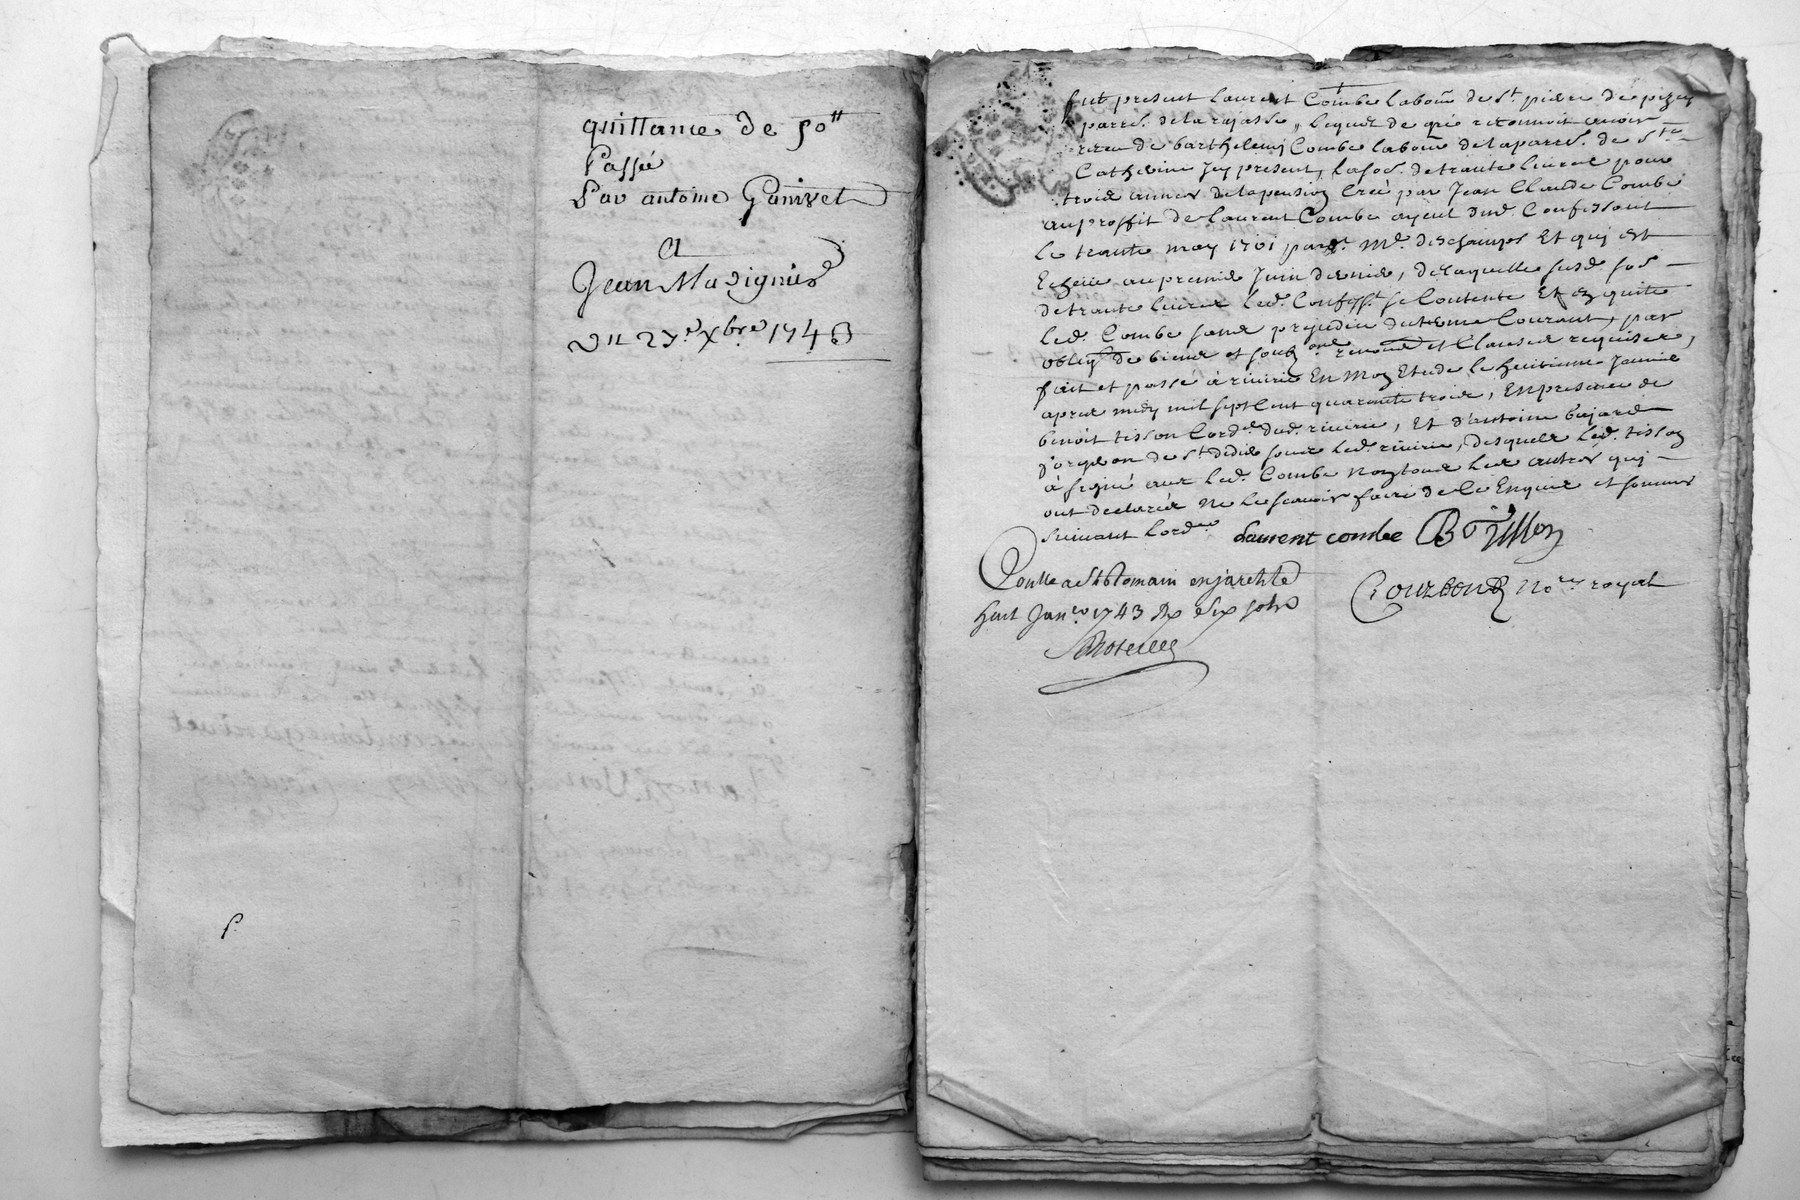 quittance de 50ᵗᵗ
Passé
Par antoine Ganivet
A
Jean Mavignier
Du 27.ᵉ Xbr.ᵉ 1743
fut present laurent Combe labou.ʳ de S.ᵗ pierre de pizey
parr.ᵉ de la rajasse, lequel de gré reconnoit avoir
receu de barthelemy Combe labou.ʳ de la parr.ᵉ de S.ᵗᵉ
Catherine Icy present, la so.ᵉ de trante livres pour
trois années de la pension creé par Jean Claude Combe
au proffit de laurent Combe ayeul dud. Confessant
le trante may 1701 par M.ᵉ deschamps Et qui est
Echeüe au premier Juin dernier, de laquelle susd. so.ᵉ
de trante livres led. Confess.ᵗ se Contente Et en quitte
led. Combe sans prejudice du terme Courant, par
oblig.ⁿ de biens et soub.ⁿ renon.ᵒⁿ et clauses requises,
fait et passé à riverie En mon Etude le huitieme Janvier
apres midy mil sept Cent quarante trois, En presence de
benoit tisson Cord.ᵉʳ dud. riverie, Et d'antoine bajard
de S.ᵗ didier sous led. riverie, desquels led. tisson
à signé avec led. Combe Non tous les autres qui
ont declarés Ne le scavoir faire de ce Enquis et sommés
suivant lord.ᶜᵉ laurent combe B tisson
Conllé a S.ᵗ Romain en jarest le
huit Jan.ᵉʳ 1743 Rx six sols
Courbon No.ʳᵉ royal